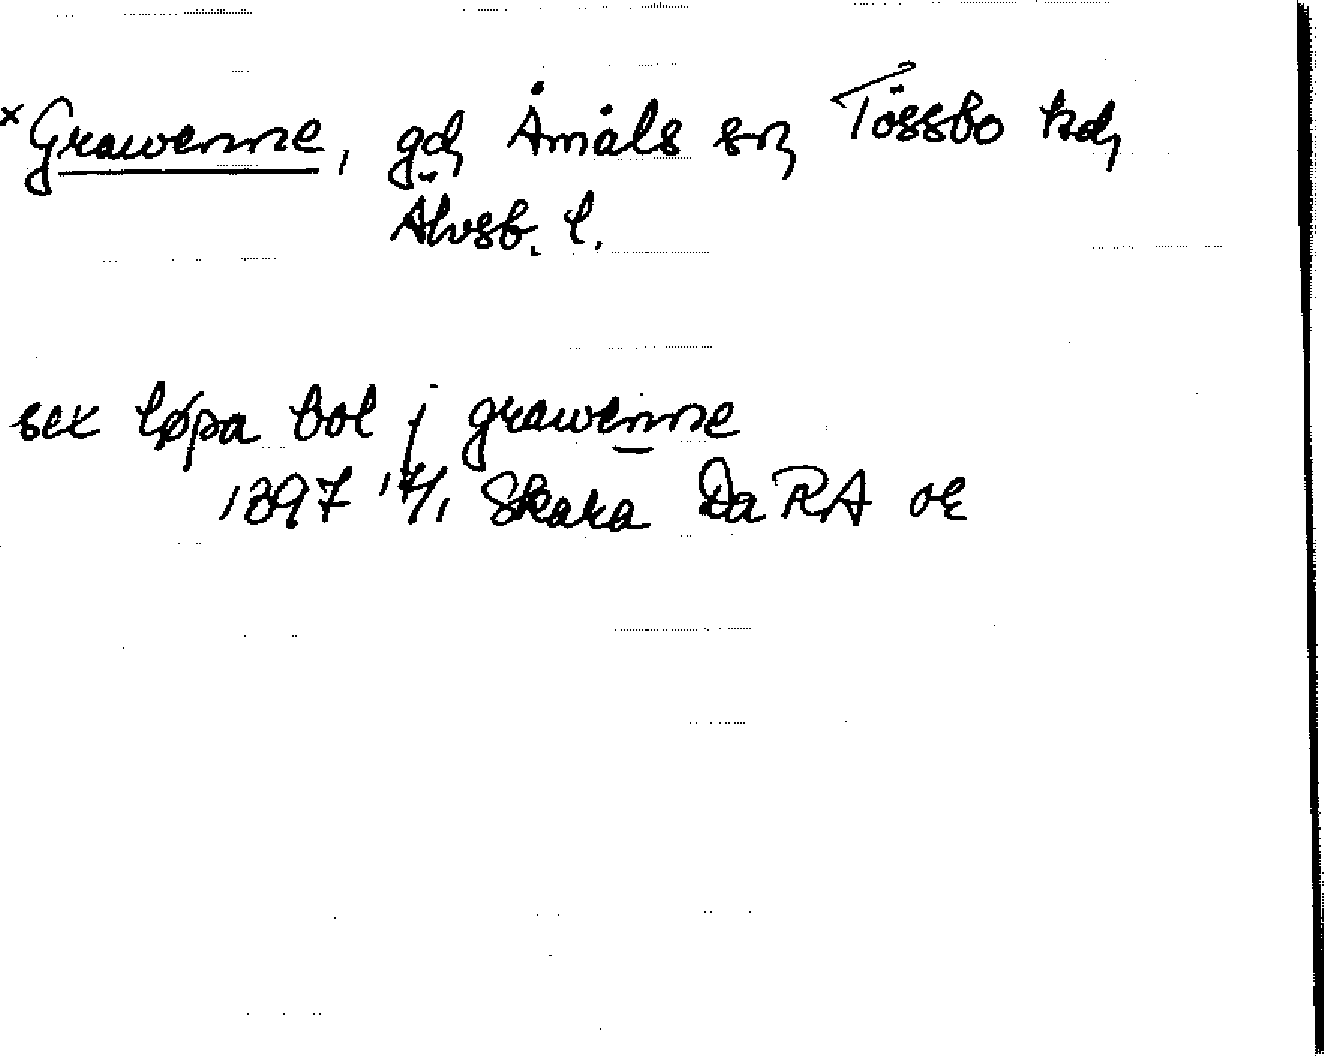 ˣGrawenne, gdʒ Åmåls snʒ Tössbo hdʒ
Älvsb. l.
sex løpa bol j grawenne
1397 17/1 Skara Da RA oe